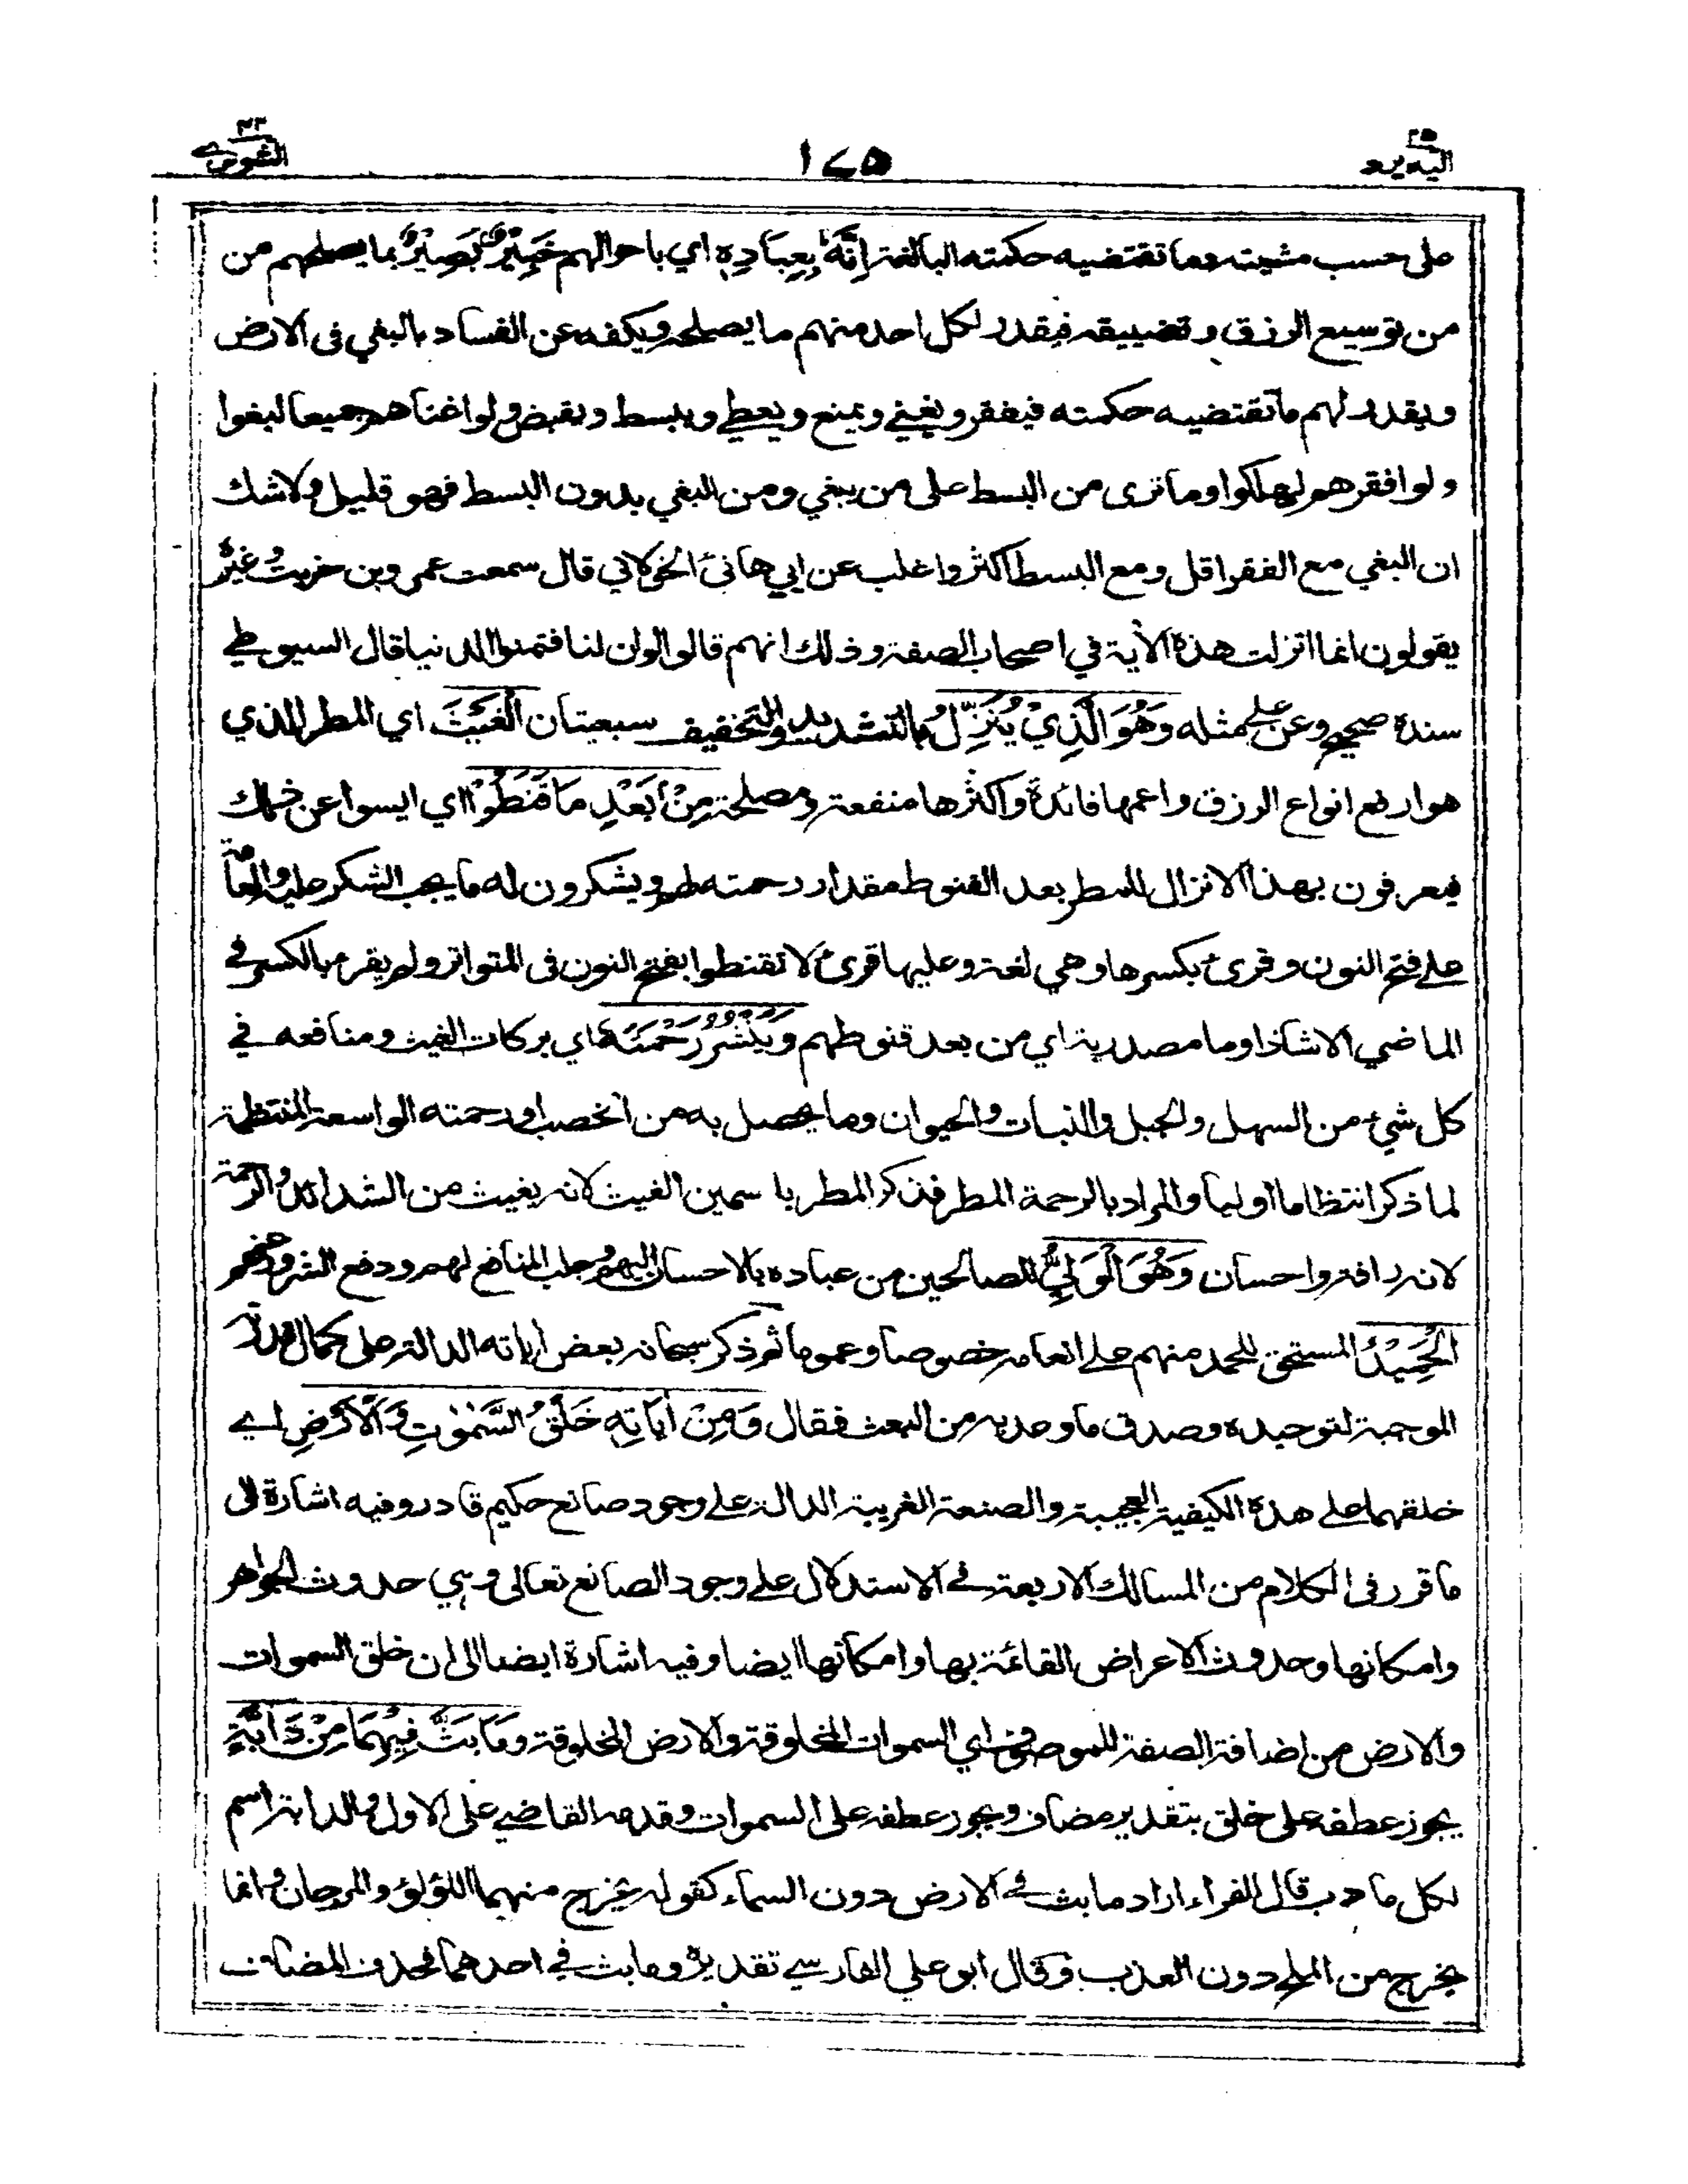 اليه يرد ٢٥
١٧٥
الشورى ٤٢
على حسب مشيته وما تقتضيه حكمته البالغة اِنَّهٗ بِعِبَادِهٖ اي باحوالهم خَبِيْرٌۢ بَصِيْرٌ بما يصلحهم من
من توسيع الرزق وتضييقه فيقدر لكل احد منهم ما يصلحه ويكفه عن الفساد بالبغي فى الارض
ويقدر لهم ما تقتضيه حكمته فيفقر ويغني ويمنع ويعطي ويبسط ويقبض ولو اغناهم جميعا لبغوا
ولو افقرهم لهلكوا وما ترى من البسط على من يبغي ومن البغي بدون البسط فهو قليل ولاشك
ان البغي مع الفقر اقل ومع البسط اكثر واغلب عن ابي هانئ الخولاني قال سمعت عمرو بن حريث وغيره
يقولون انما انزلت هذه الآية في اصحاب الصفة وذلك انهم قالوا لو ان لنا فتمنوا الدنيا قال السيوطي
سنده صحيح وعن علي مثله وَهُوَ الَّذِيْ يُنَزِّلُ بالتشديد والتخفيف سبعيتان الْغَيْثَ اي المطر الذي
هو ارفع انواع الرزق واعمها فائدة واكثرها منفعة ومصلحة مِنْۢ بَعْدِ مَا قَنَطُوْا اي ايسوا عن ذلك
فيعرفون بهذا الانزال للمطر بعد القنوط مقدار رحمته لهم ويشكرون له ما يجب الشكر عليه والعامة
على فتح النون وقرئ بكسرها وهي لغة وعليها قرئ لا تقنطوا بفتح النون فى المتواتر ولم يقرء بالكسر في
الماضي الا شاذا وما مصدرية اي من بعد قنوطهم وَيَنْشُرُ رَحْمَتَهٗ اي بركات الغيث ومنافعه في
كل شيء من السهل والجبل والنبات والحيوان وما يحصل به من الخصب او رحمته الواسعة المنتظمة
لما ذكر انتظاما اوليا والمراد بالرحمة المطر فذكر المطر با سمين الغيث لانه يغيث من الشدائد والرحمة
لانه رافة واحسان وَهُوَ الْوَلِيُّ للصالحين من عباده بالاحسان اليهم وجلب المنافع لهم ودفع الشرور عنهم
الْحَمِيْدُ المستحق للحمد منهم على انعامه خصوصا وعموما ثم ذكر سبحانه بعض اياته الدالة على كمال قدرته
الموجبة لتوحيده وصدق ما وعد به من البعث فقال وَمِنْ اٰيَاتِهٖ خَلْقُ السَّمٰوٰتِ وَالْاَرْضِ اي
خلقهما على هذه الكيفية العجيبة والصنعة الغريبة الدالة على وجود صانع حكيم قادر وفيه اشارة الى
ما قرر فى الكلام من المسالك الاربعة في الاستدلال على وجود الصانع تعالى وهي حدوث الجواهر
وامكانها وحدوث الاعراض القائمة بها وامكانها ايضا وفيه اشارة ايضا الى ان خلق السموات
والارض من اضافة الصفة للموصوف اي السموات المخلوقة والارض المخلوقة وَمَا بَثَّ فِيْهِمَا مِنْ دَابَّةٍ
يجوز عطفه على خلق بتقدير مضاف ويجوز عطفه على السموات وقدمه القاضي على الاول والدابة اسم
لكل ما دب قال الفراء اراد ما بث في الارض دون السماء كقوله يخرج منهما اللؤلؤ والمرجان وانما
يخرج من الملح دون العذب وقال ابو علي الفارسي تقديره وما بث في احدهما فحذف المضاف